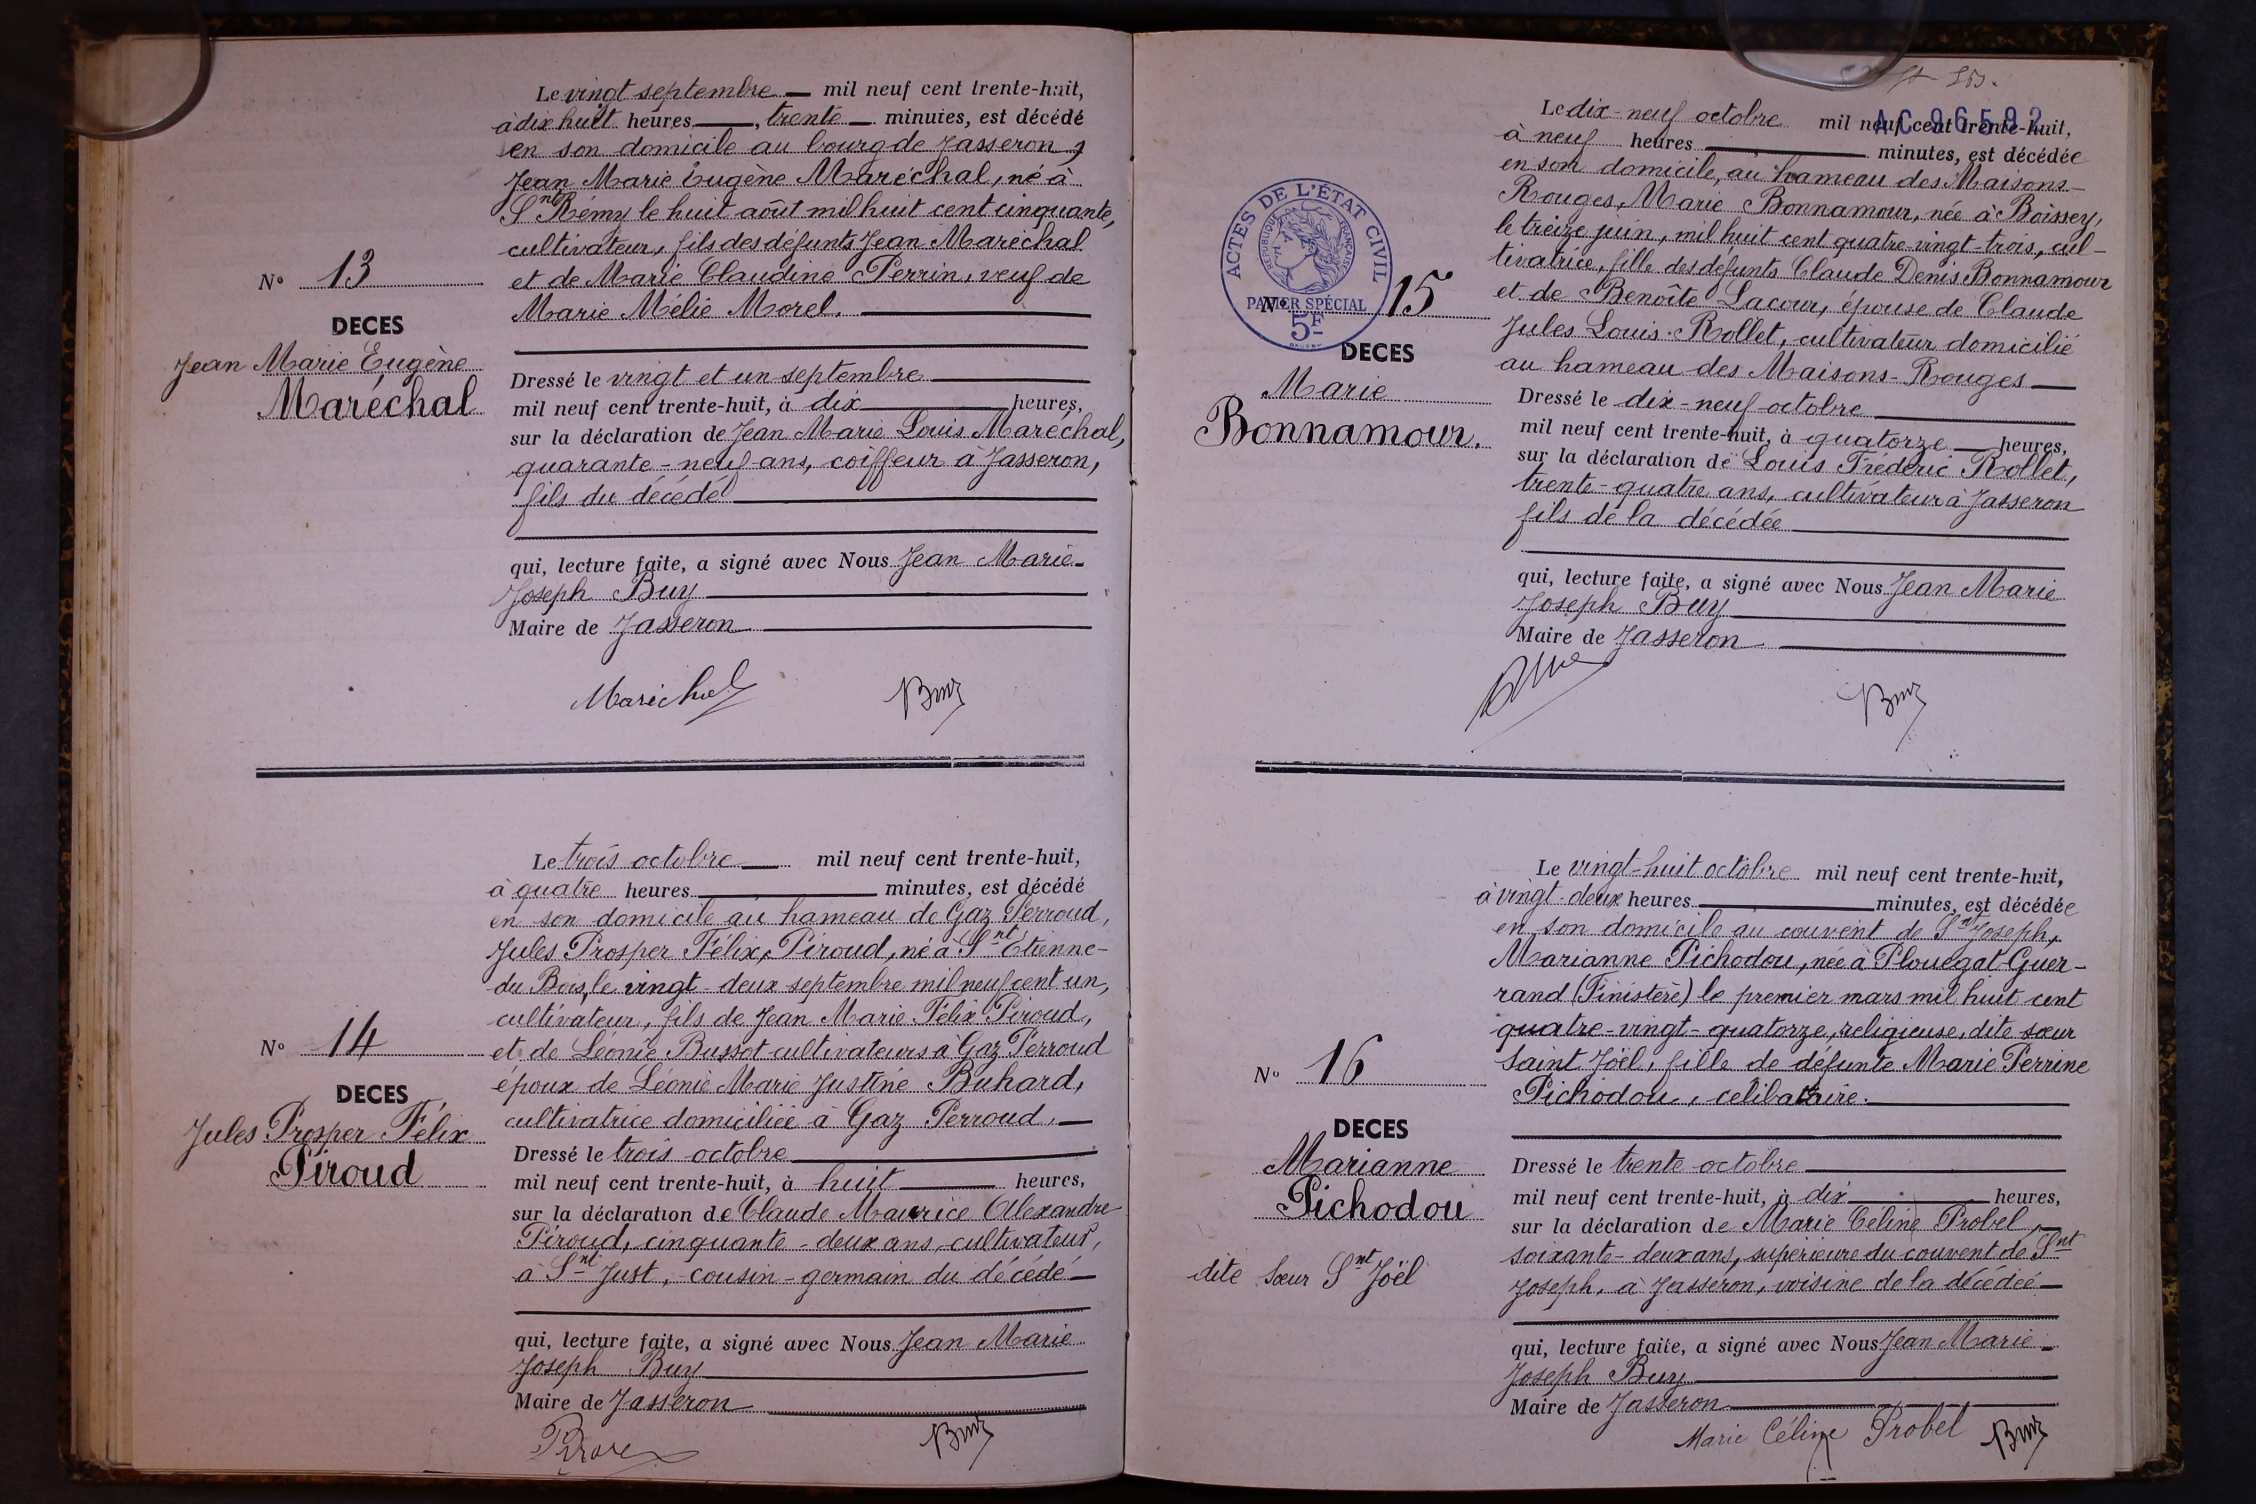 Le vingt septembre — mil neuf cent trente-huit,
à dix huit heures —, trente — minutes, est décédé
en son domicile au bourg de Jasseron,
Jean Marie Eugène Maréchal, né à
Snt Rémy le huit août mil huit cent cinquante,
cultivateur, fils des défunts Jean Maréchal
et de Marie Claudine Perrin, veuf de
Marie Mélie Morel.
N° 13
DECES
Jean Marie Eugène
Maréchal
Dressé le vingt et un septembre
mil neuf cent trente-huit, à dix heures,
sur la déclaration de Jean Marie Louis Maréchal,
quarante-neuf ans, coiffeur à Jasseron,
fils du décédé
qui, lecture faite, a signé avec Nous Jean Marie
Joseph Buy
Maire de Jasseron
Maréchal Buy
Le trois octobre — mil neuf cent trente-huit,
à quatre heures — minutes, est décédé
en son domicile au hameau de Gaz Perroud,
Jules Prosper Félix, Piroud, né à Snt Étienne-
du Bois, le vingt-deux septembre mil neuf cent un,
cultivateur, fils de Jean Marie Félix Piroud,
et de Léonie Bussot cultivateurs à Gaz Perroud
époux de Léonie Marie Justine Buhard,
cultivatrice domiciliée à Gaz Perroud. —
N° 14
DECES
Jules Prosper Félix
Piroud
Dressé le trois octobre
mil neuf cent trente-huit, à huit heures,
sur la déclaration de Claude Maurice Alexandre
Piroud, cinquante-deux ans, cultivateur,
à Snt Just, cousin-germain du décédé —
qui, lecture faite, a signé avec Nous Jean Marie
Joseph Buy
Maire de Jasseron
Buy
AC 96592
Le dix-neuf octobre mil neuf cent trente-huit,
à neuf heures — minutes, est décédée
en son domicile, au hameau des Maisons-
Rouges, Marie Bonnamour, née à Boissey,
le treize juin, mil huit cent quatre-vingt-trois, cul-
tivatrice, fille des défunts Claude Denis Bonnamour
et de Benoîte Lacour, épouse de Claude
Jules Louis Rollet, cultivateur domicilié
au hameau des Maisons-Rouges —
ACTES DE L'ÉTAT CIVIL
RÉPUBLIQUE FRANÇAISE
PAPIER SPÉCIAL
5F
N° 15
DECES
Marie
Bonnamour.
Dressé le dix-neuf octobre
mil neuf cent trente-huit, à quatorze — heures,
sur la déclaration de Louis Frédéric Rollet,
trente-quatre ans, cultivateur à Jasseron
fils de la décédée
qui, lecture faite, a signé avec Nous Jean Marie
Joseph Buy
Maire de Jasseron
Buy
Le vingt-huit octobre mil neuf cent trente-huit,
à vingt-deux heures — minutes, est décédée
en son domicile au couvent de Snt Joseph,
Marianne Pichodou, née à Plouegat-Guer-
rand (Finistère) le premier mars mil huit cent
quatre-vingt-quatorze, religieuse, dite sœur
Saint Joël, fille de défunte Marie Perrine
Pichodou, célibataire.
N° 16
DECES
Marianne
Pichodou
dite Sœur Snt Joël
Dressé le trente octobre
mil neuf cent trente-huit, à dix heures,
sur la déclaration de Marie Céline Probel,
soixante-deux ans, supérieure du couvent de Snt
Joseph, à Jasseron, voisine de la décédée —
qui, lecture faite, a signé avec Nous Jean Marie
Joseph Buy
Maire de Jasseron
Marie Céline Probel Buy